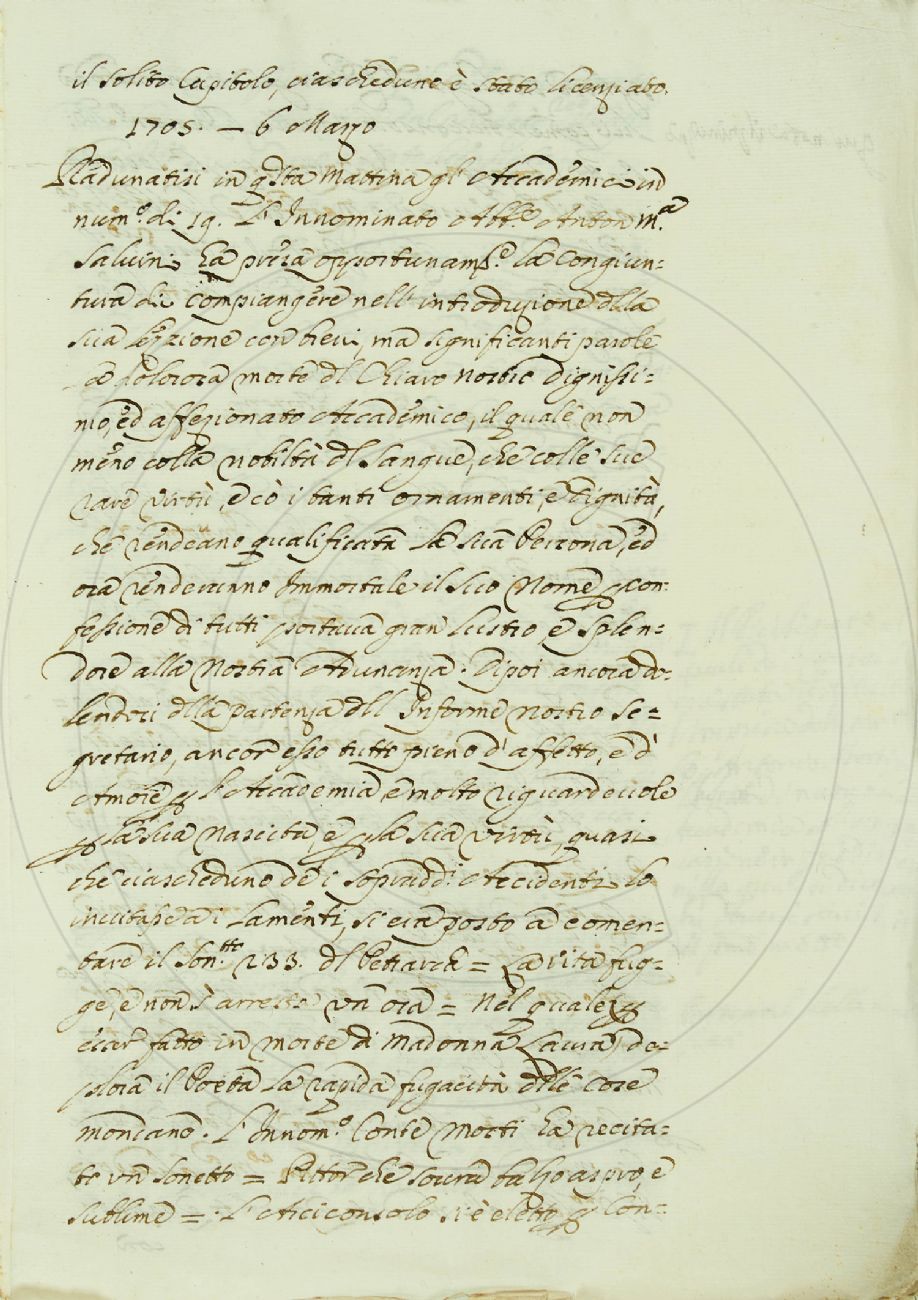 il solito Capitolo, ciascheduno è stato licenziato.
1705. — 6 Marzo
Radunatisi in q.sta Mattina gl' Accademici in
num.o di 19. L'Innominato Abb.e Anton M.a
Salvini ha presa opportunam.e la Congiun-
tura di Compiangere nell' introduzione dlla
sua lezzione con brevi, ma significanti parole
la dolorosa morte dl Chiaro Nostro Dignissi-
mo, ed affezionato Accademico, il quale non
meno colla nobiltà dl Sangue, che colle sue
rare virtù, e cò i tanti ornamenti, e dignità,
che rendeano qualificata la sua Persona, ed
ora renderanno Immortale il suo Nome p con-
fessione di tutti portava gran lustro e Splen-
dore alla Nostra Adunanza. Dipoi ancora do-
lendosi dlla partenza dll' Informe Nostro Se-
gretario, ancor esso tutto pieno d'affetto, e d'
Amore p l'Accademia, e molto riguardevole
p la sua Nascita, e p la sua virtù, quasi
che ciascheduno de i sopradd.i Accidenti lo
invitasse a i Lamenti, si era posto a comen-
tare il Son.tto 233. dl Petrarca = La vita fug-
ge, e non s'arresta un ora = Nel quale p
esser fatto in morte di Madonna Laura, de-
plora il Poeta la rapida fugacità dlle cose
mondane. L'Innom.o Conte Morti ha recita-
to un Sonetto = Pittor che sovra balzo aspro, e
sublime =. L'Arciconsolo si è eletto p Con-